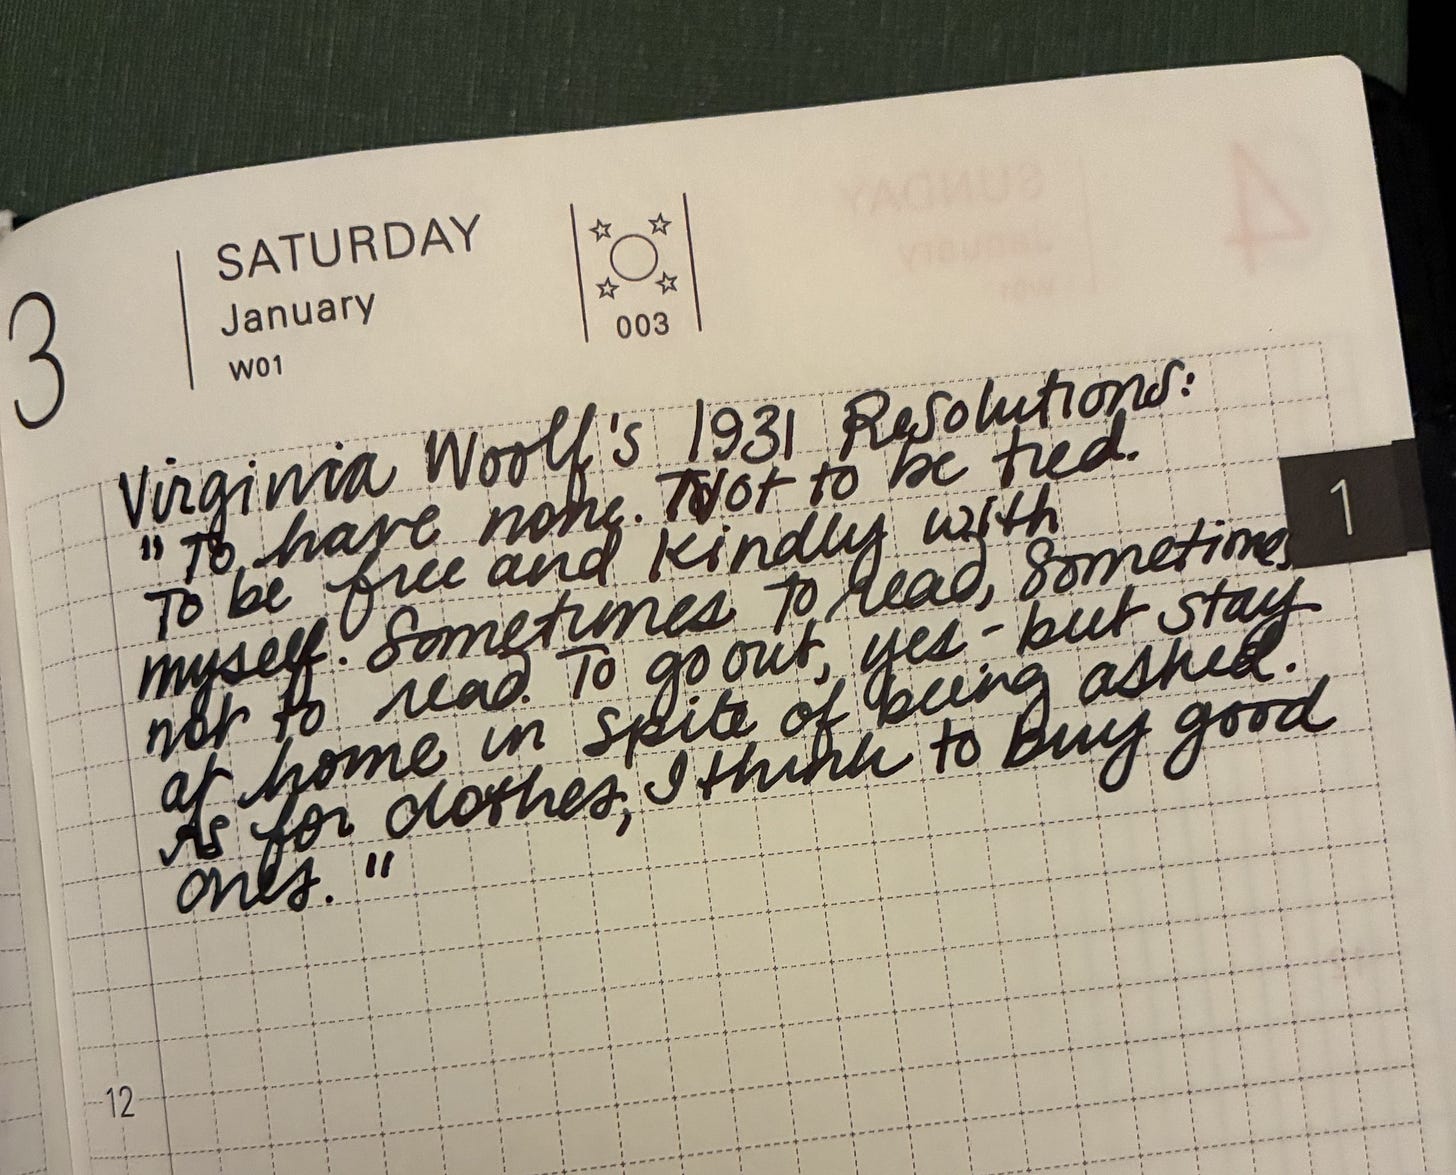 3
SATURDAY
January
W01
003
SUNDAY
January
W01
4
Virginia Woolf's 1931 Resolutions:
"To have none. Not to be tied.
To be free and kindly with
myself. Sometimes to read, sometimes
not to read. To go out, yes - but stay
at home in spite of being asked.
As for clothes, I think to buy good
ones."
1
12